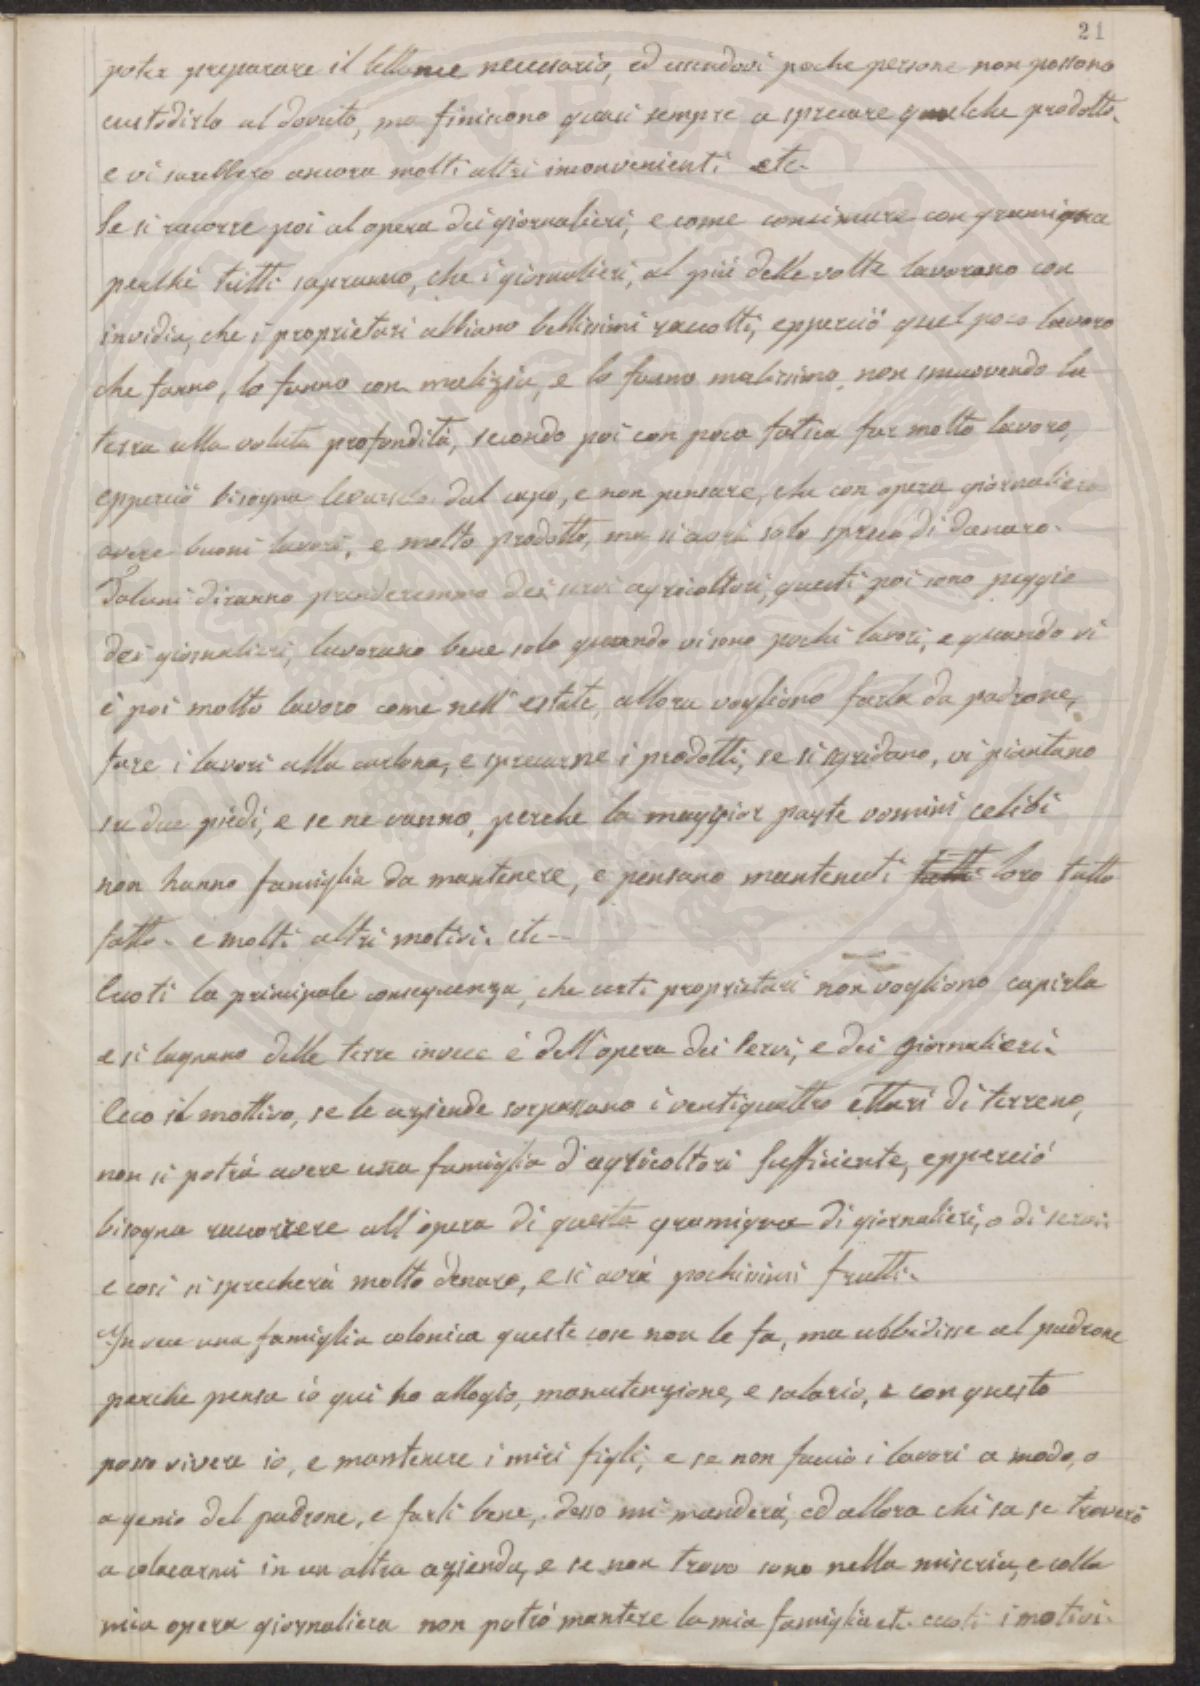 21
poter preparare il lettame necessario, ed essendovi poche persone non possono
custodirlo al dovuto, ma finiscono quasi sempre a sprecare qualche prodotto.
e vi sarebbero ancora molti altri inconvenienti etc.
Se si racorre poi al opera dei giornalieri, e come concimare con gramigna
perchè tutti sapranno, che i giornalieri, al più delle volte lavorano con
invidia, che i proprietari abbiano bellissimi raccolti, epperciò quel poco lavoro
che fanno, lo fanno con malizia, e lo fanno malissimo, non smuovendo la
terra alla voluta profondità, secondo poi con poca fatica far molto lavoro,
epperciò bisogna levarselo dal capo, e non pensare, che con opera giornaliera
avere buoni lavori, e molto prodotto, ma si avrà solo spreco di danaro.
Taluni diranno prenderemmo dei servi agricoltori, questi poi sono peggio
dei giornalieri, lavorano bene solo quando vi sono pochi lavori, e quando vi
è poi molto lavoro come nell'estate, allora vogliono farla da padrone,
fare i lavori alla carlona, e sprecarne i prodotti, se si sgridano, vi piantano
su due piedi, e se ne vanno, perche la maggior parte uomini celibi
non hanno famiglia da mantenere, e pensano mantenuti tutti loro tutto
fatto. e molti altri motivi. etc
Ecoti la principale conseguenza, che certi proprietari non vogliono capirla
e si lagnano delle terre invece è dell'opera dei servi, e dei giornalieri.
Eco il mottivo, se le aziende sorpassano i ventiquattro ettari di terreno,
non si potrà avere una famiglia d'agricoltori sufficiente, epperciò
bisogna racorrere all'opera di questa gramigna di giornalieri, o di servi,
e cosi si sprecherà molto denaro, e si avrà pochissimi frutti.
Invece una famiglia colonica queste cose non le fa, ma ubbidisse al padrone
perchè pensa io qui ho allogio, manutenzione, e salario, e con questo
posso vivere io, e mantenere i miei figli, e se non faccio i lavori a modo, o
a genio del padrone, e farli bene, desso mi manderà, ed allora chi sa se troverò
a colocarmi in un altra azienda, e se non trovo sono nella miseria, e colla
mia opera giornaliera non potrò mantere la mia famiglia etc. ecoti i motivi.